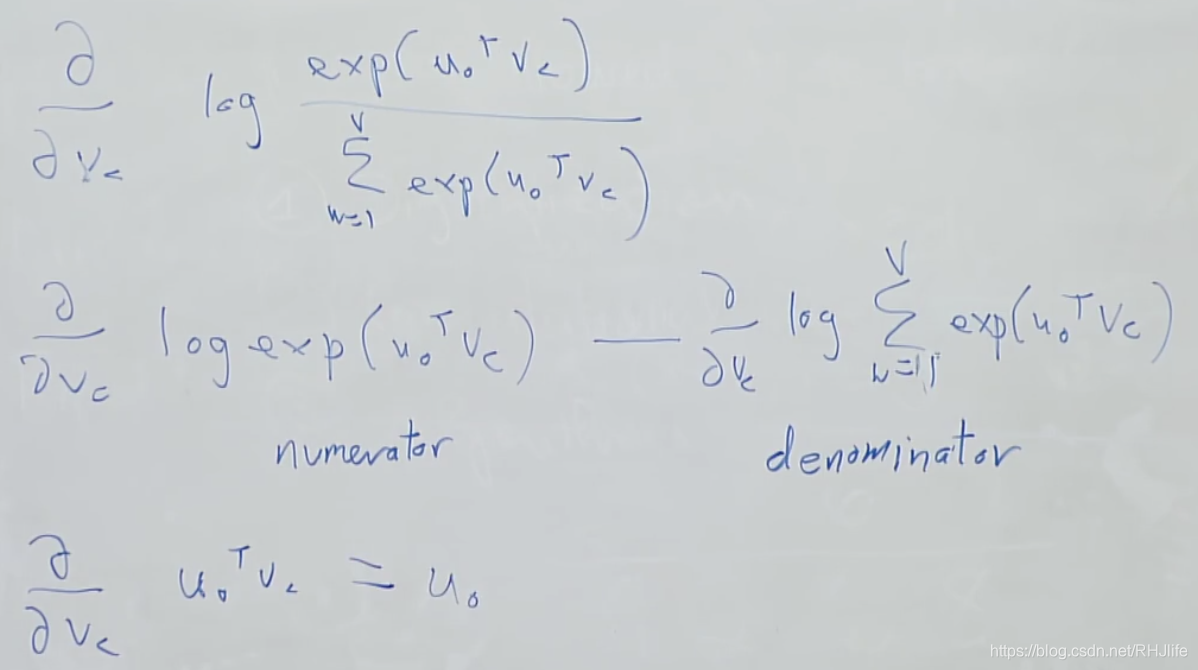 ∂/∂v_c log exp(u_o^T v_c) / ∑_{w=1}^{V} exp(u_o^T v_c)
∂/∂v_c log exp(u_o^T v_c) — ∂/∂v_c log ∑_{w=1}^{V} exp(u_o^T v_c)
numerator denominator
∂/∂v_c u_o^T v_c = u_o
https://blog.csdn.net/RHJlife